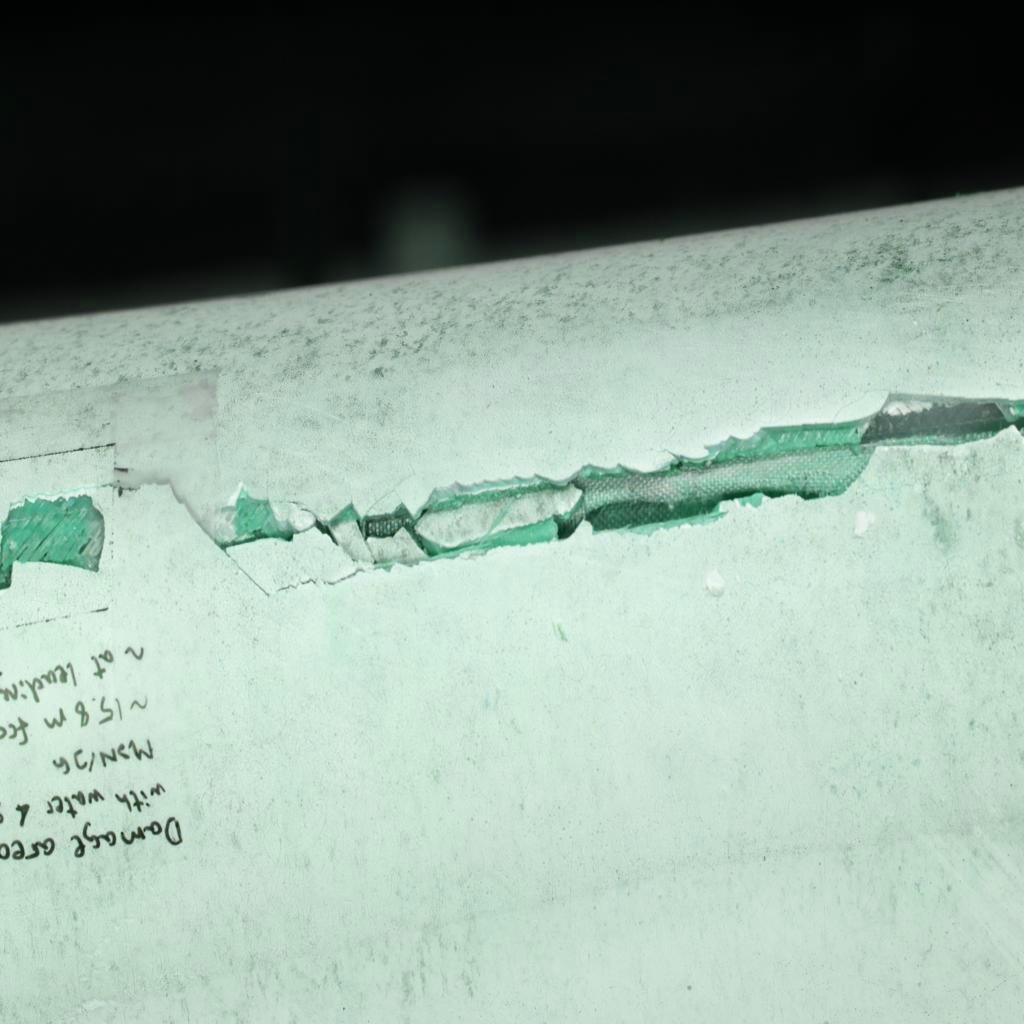 Damage area
with water &
MSN/JG
~15.8 m
~ at leading